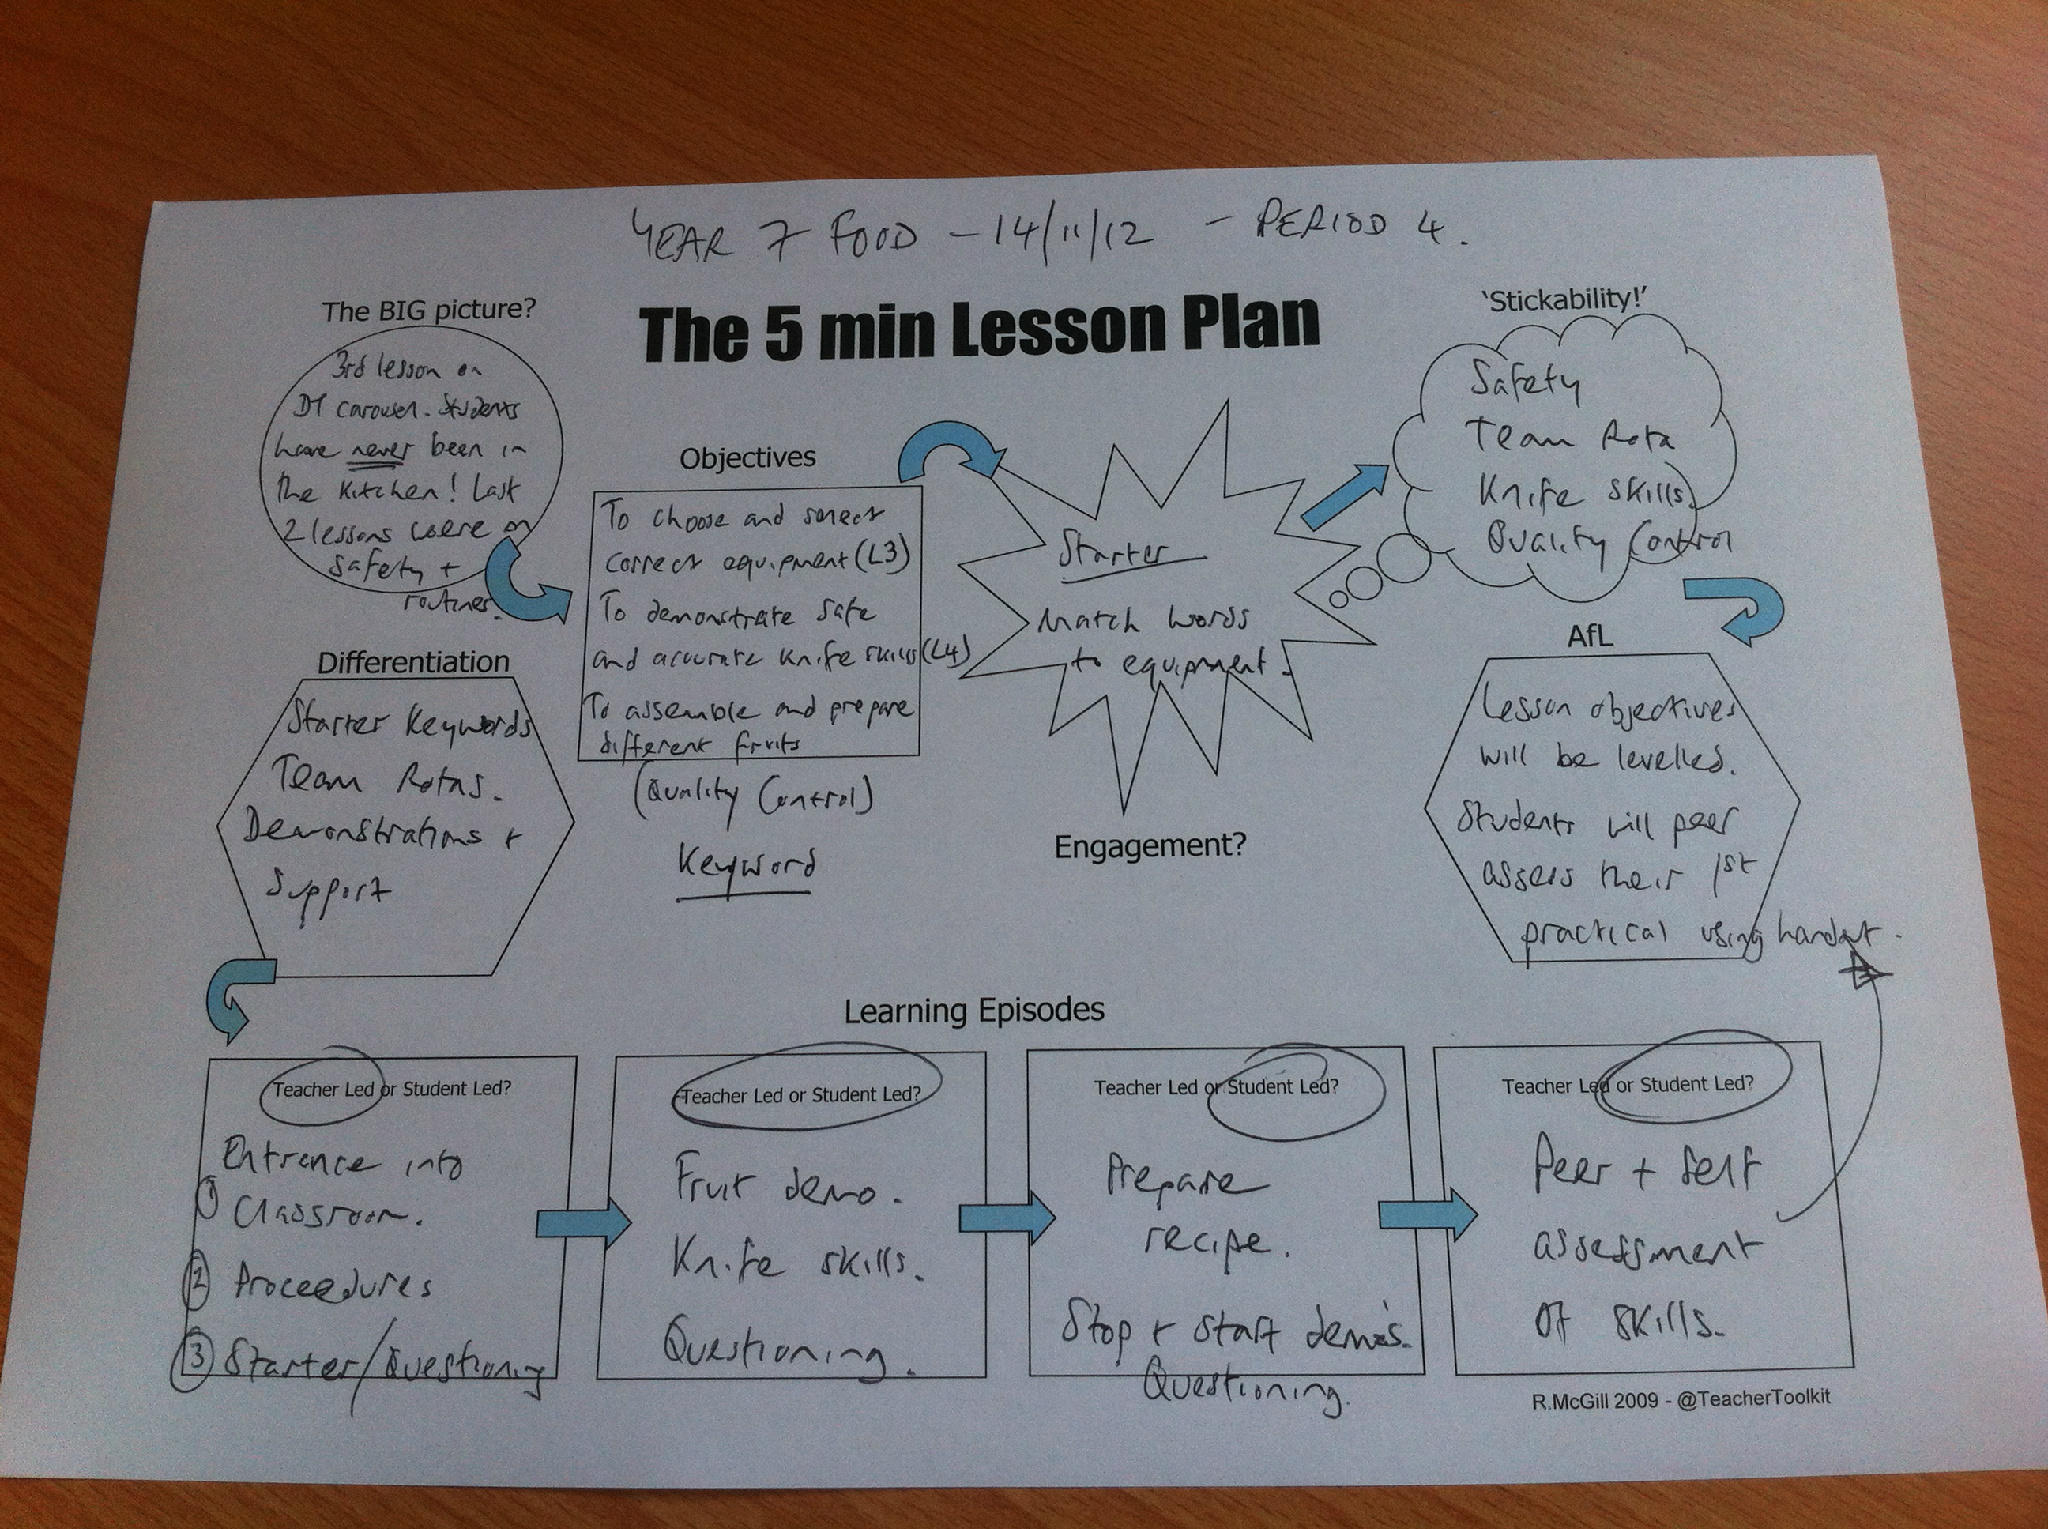 YEAR 7 FOOD - 14/11/12 - PERIOD 4.
The 5 min Lesson Plan
The BIG picture?
3rd lesson on
DT carousel. Students
have never been in
the kitchen! Last
2 lessons were on
safety +
routines.
Objectives
To choose and select
correct equipment (L3)
To demonstrate safe
and accurate knife skills (L4)
To assemble and prepare
different fruits
(Quality Control)
Keyword
Starter
Match words
to equipment.
Engagement?
'Stickability!'
Safety
Team Rota
Knife skills.
Quality Control
Differentiation
Starter Keywords
Team Rotas.
Demonstrations +
Support
AfL
Lesson objectives
will be levelled.
Students will peer
assess their 1st
practical using handout.
Learning Episodes
Teacher Led or Student Led?
Entrance into
1 Classroom.
2 Proceedures
3 Starter/Questioning
Teacher Led or Student Led?
Fruit demo.
Knife skills.
Questioning.
Teacher Led or Student Led?
Prepare
recipe.
Stop + start demo's.
Questioning.
Teacher Led or Student Led?
Peer + self
assessment
of skills.
R.McGill 2009 - @TeacherToolkit